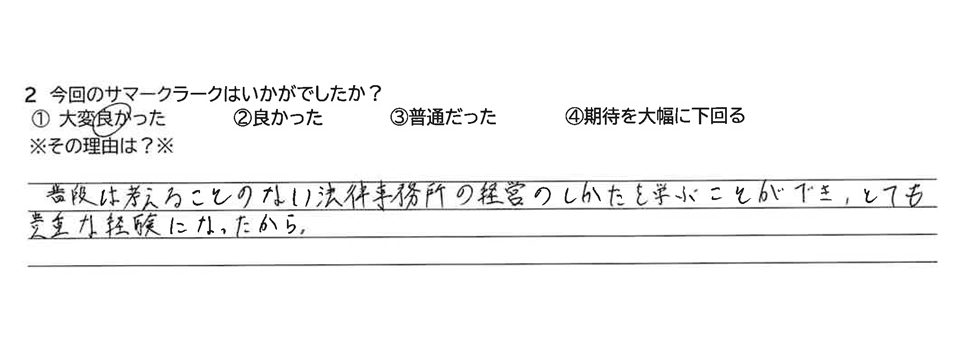 2 今回のサマークラークはいかがでしたか？
① 大変良かった ②良かった ③普通だった ④期待を大幅に下回る
※その理由は？※
普段は考えることのない法律事務所の経営のしかたを学ぶことができ、とても
貴重な経験になったから。